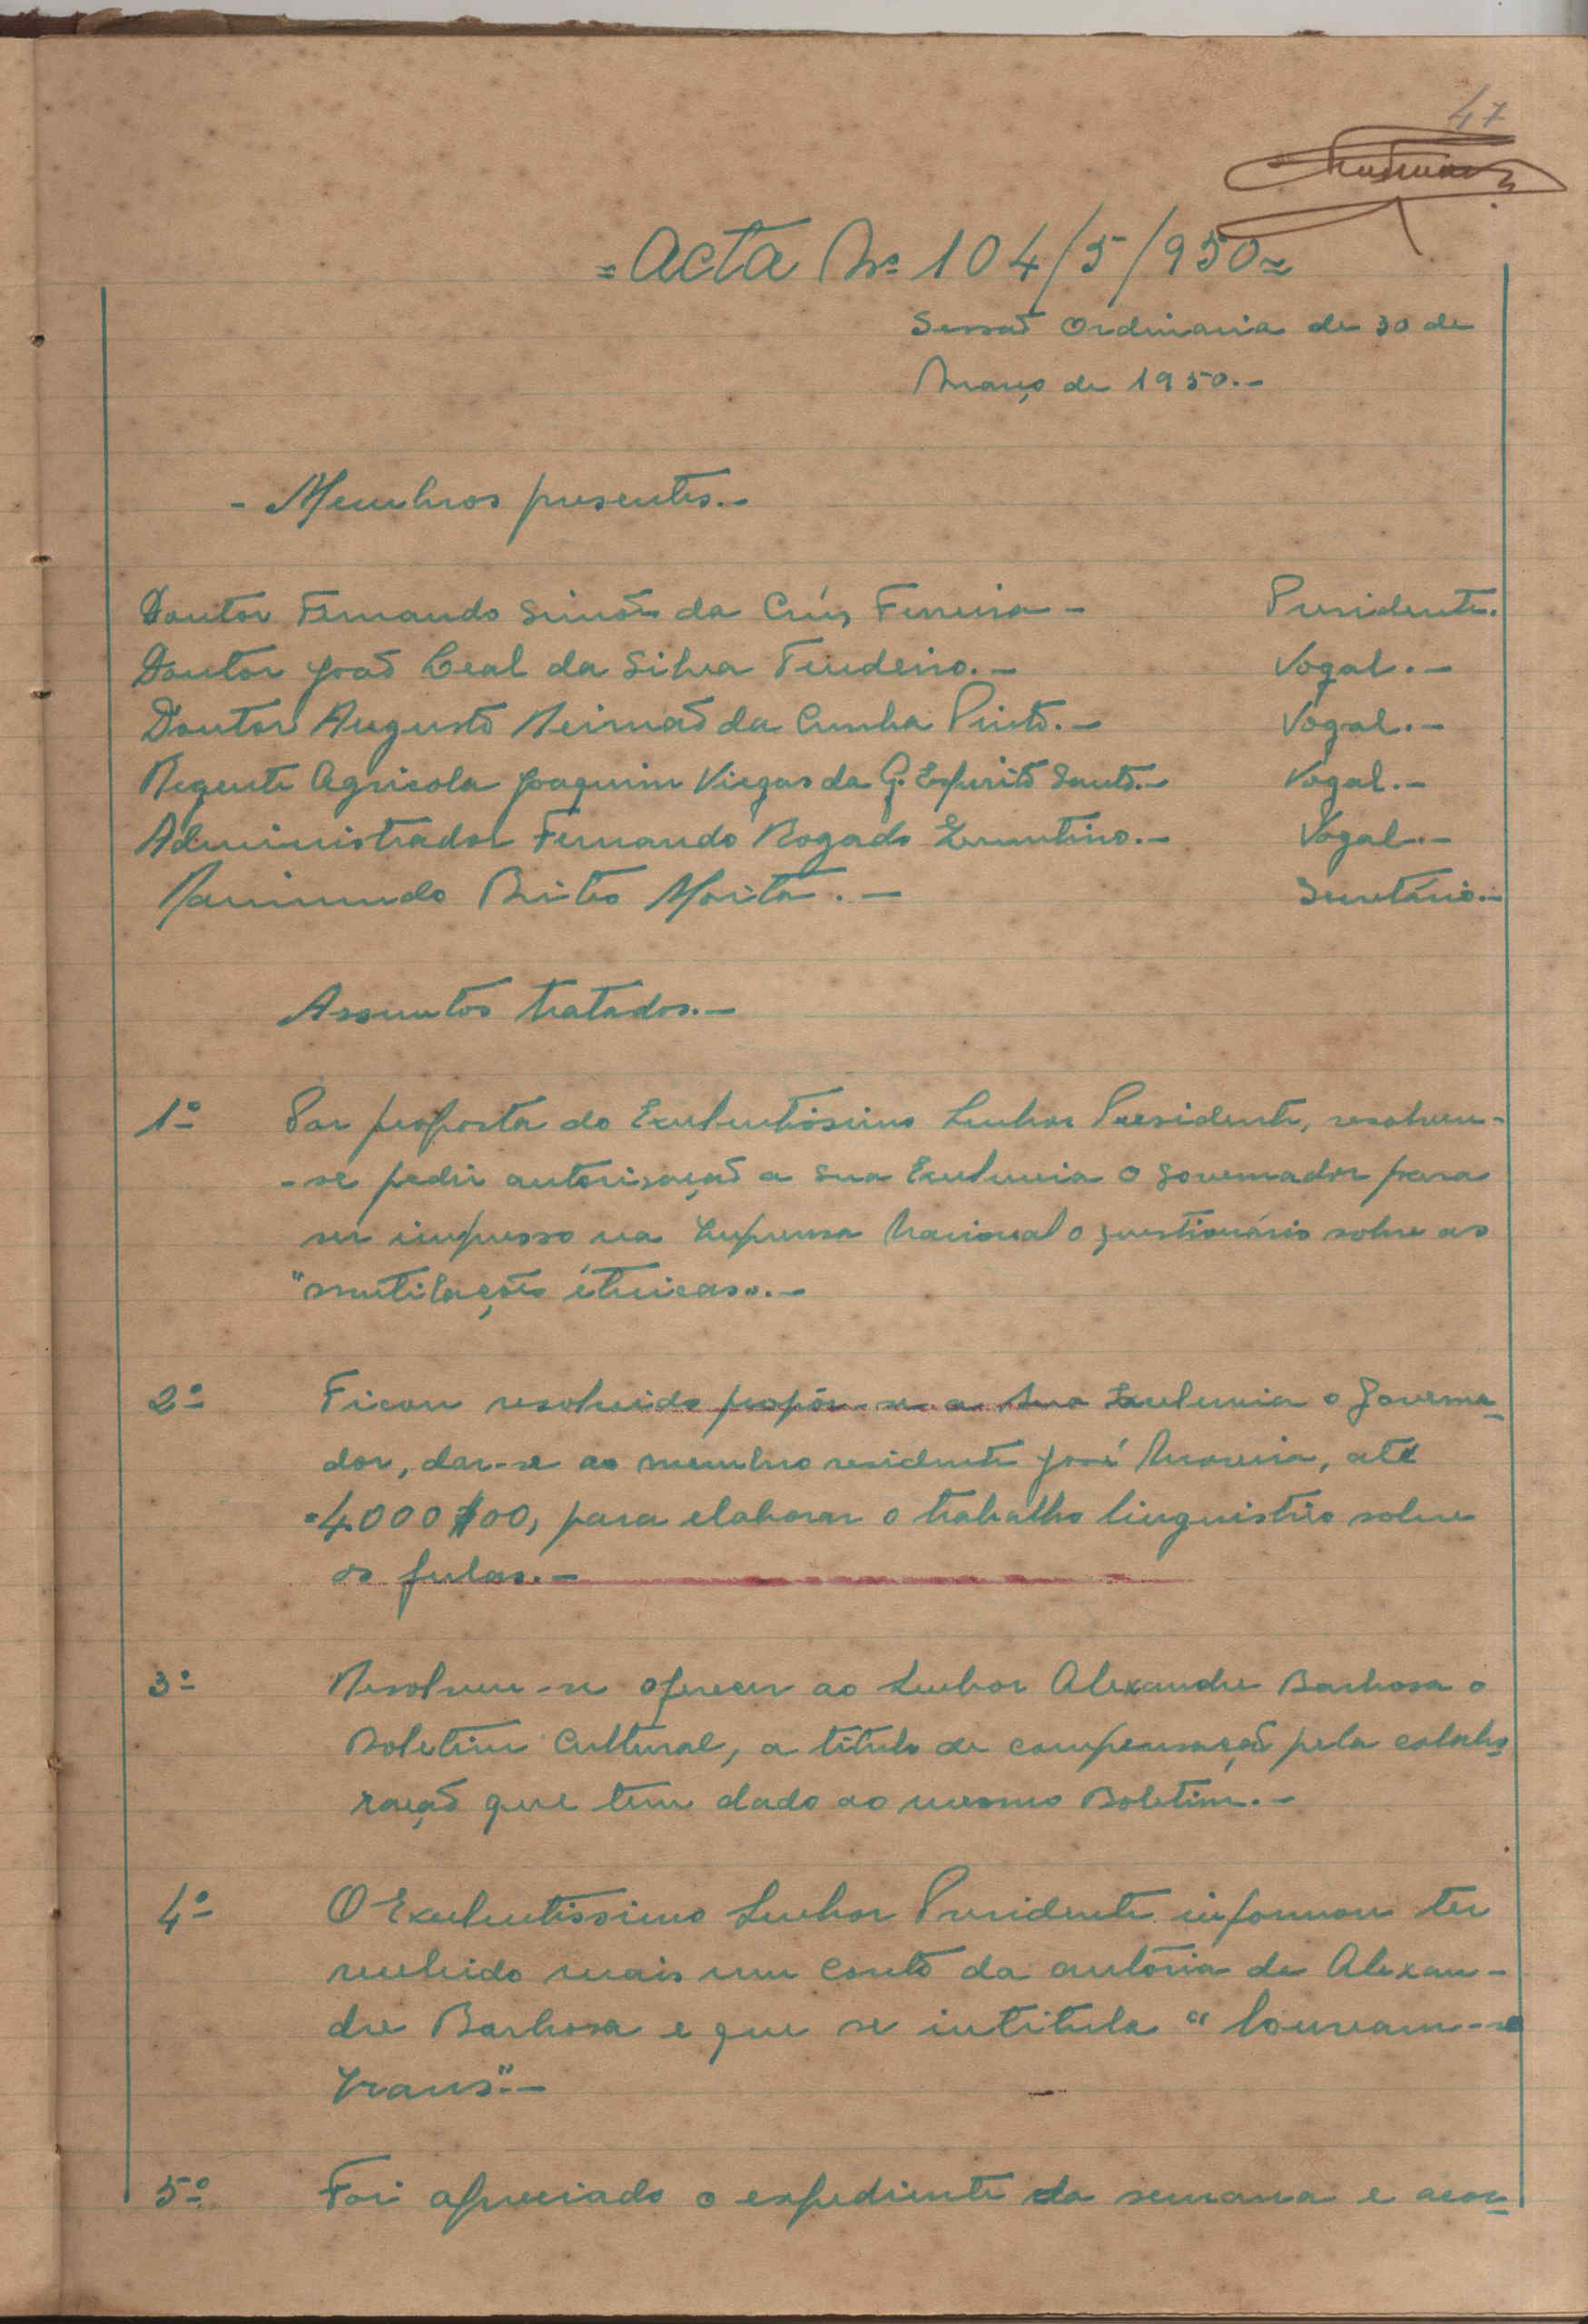 47
= Acta Nº 104/5/950 =
Sessão Ordinaria de 30 de
Março de 1950.-
- Membros presentes.-
Doutor Fernando Simões da Crús Ferreira - Presidente.
Doutor João Leal da Silva Tendeiro.- Vogal.-
Doutor Augusto Reimão da Cunha Pinto.- Vogal.-
Regente Agricola Joaquim Viegas da G. Espirito Santo.- Vogal.-
Administrador Fernando Rogado Quintino.- Vogal.-
Raimundo Brito Morita.- Secretário.-
Assuntos tratados.-
1º Por proposta do Excelentissimo Senhor Presidente, resolveu-
-se pedir autorisação a Sua Excelencia o Governador para
ser impresso na Imprensa Nacional o questionário sobre as
"mutilações étnicas".-
2º Ficou resolvido propôr-se a Sua Excelencia o Governa-
dor, dar-se ao membro residente José Moreira, até
4.000$00, para elaborar o trabalho linguistico sobre
os fulas.-
3º Resolveu-se oferecer ao Senhor Alexandre Barbosa o
Boletim Cultural, a título de compensação pela colabo-
ração que tem dado ao mesmo Boletim.-
4º O Excelentissimo Senhor Presidente informou ter
recebido mais um conto da autoria de Alexan-
dre Barbosa e que se intitula "
5º Foi apreciado o expediente da semana e acor-